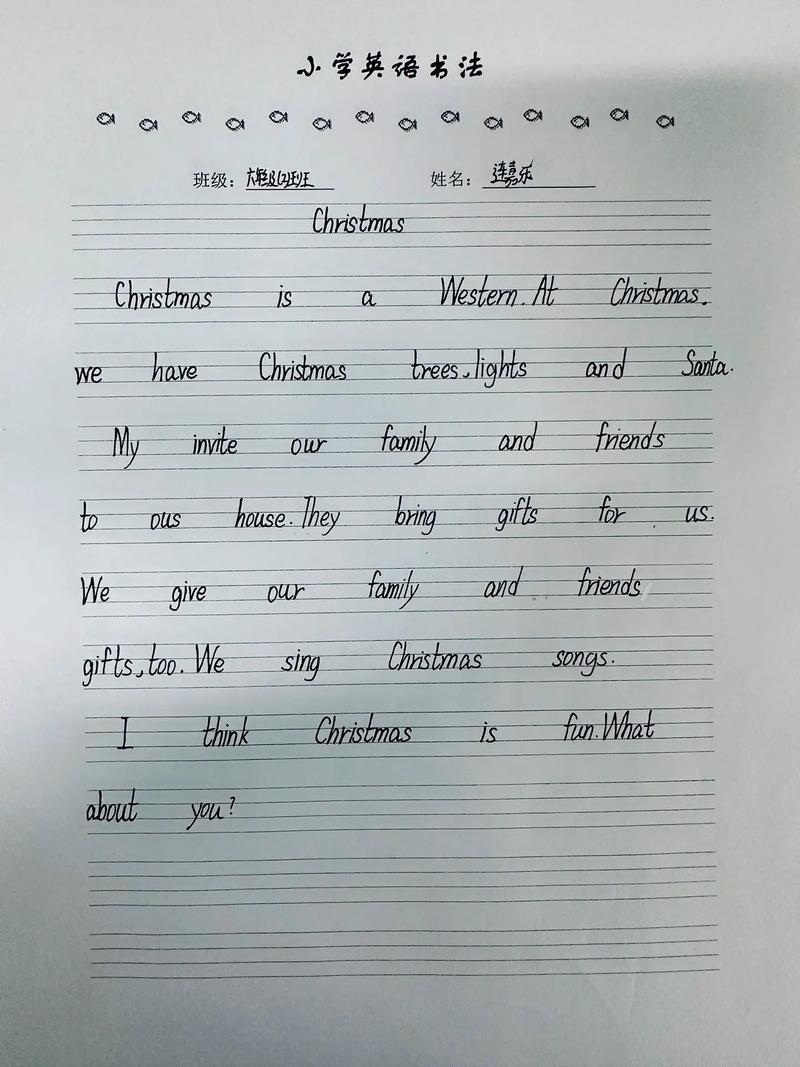 小学英语书法
班级：六年级(2)班 姓名：连嘉乐
Christmas
Christmas is a Western. At Christmas.
we have Christmas trees, lights and Santa.
My invite our family and friends
to ous house. They bring gifts for us.
We give our family and friends
gifts, too. We sing Christmas songs.
I think Christmas is fun. What
about you?